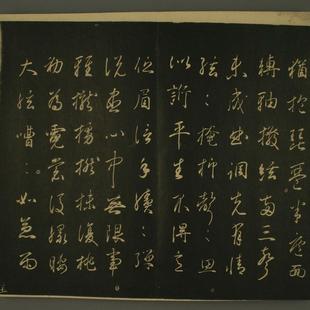 猶抱琵琶半遮面
轉軸撥絃兩三聲
未成曲調先有情
絃々掩抑聲々思
似訴平生不得意
低眉信手續々彈
說盡心中無限事
輕攏慢撚抹復挑
初為霓裳後綠腰
大絃嘈々如急雨